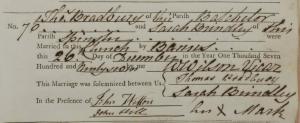 No. 70 Tho.s Bradbury of this Parish Batchelor
and Sarah Brindley of this
Parish Spinster were
Married in this Church by Banns
this 26 Day of December in the Year One Thousand Seven
Hundred and Ninety
This Marriage was solemnized between Us Thomas Bradbury
Sarah Brindley
In the Presence of John
John her X Mark